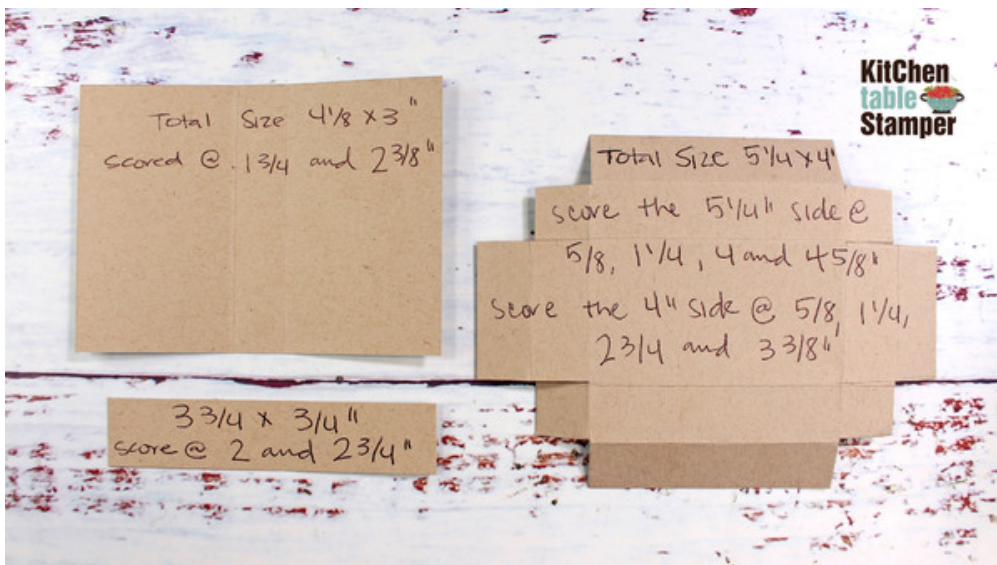 Total Size 4 1/8 x 3"
scored @ 1 3/4 and 2 3/8"
3 3/4 x 3/4"
score @ 2 and 2 3/4"
KitChen
table
Stamper
Total Size 5 1/4 x 4"
score the 5 1/4" side @
5/8, 1 1/4, 4 and 4 5/8"
score the 4" side @ 5/8, 1 1/4,
2 3/4 and 3 3/8"